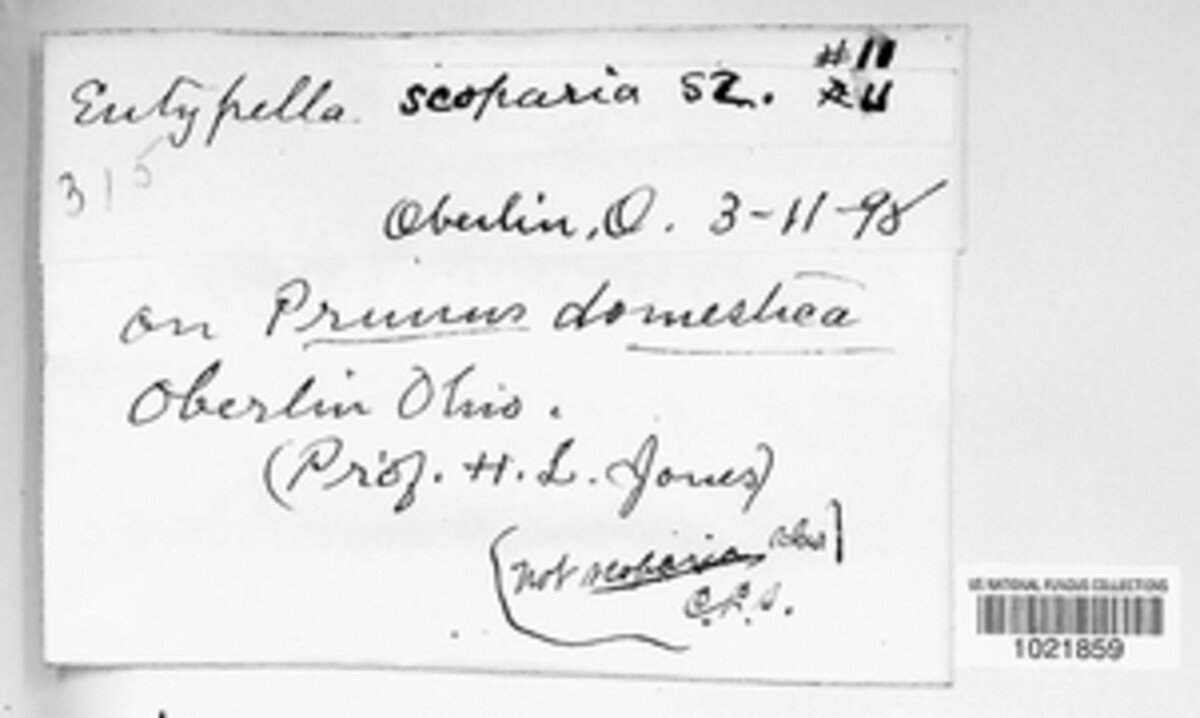 Eutypella scoparia SZ. #11
11
315
Oberlin, O. 3-11-98
on Prunus domestica
Oberlin Ohio.
(Prof. H. L. Jones)
[not scoparia
C.L.S.
US NATIONAL FUNGUS COLLECTIONS
1021859